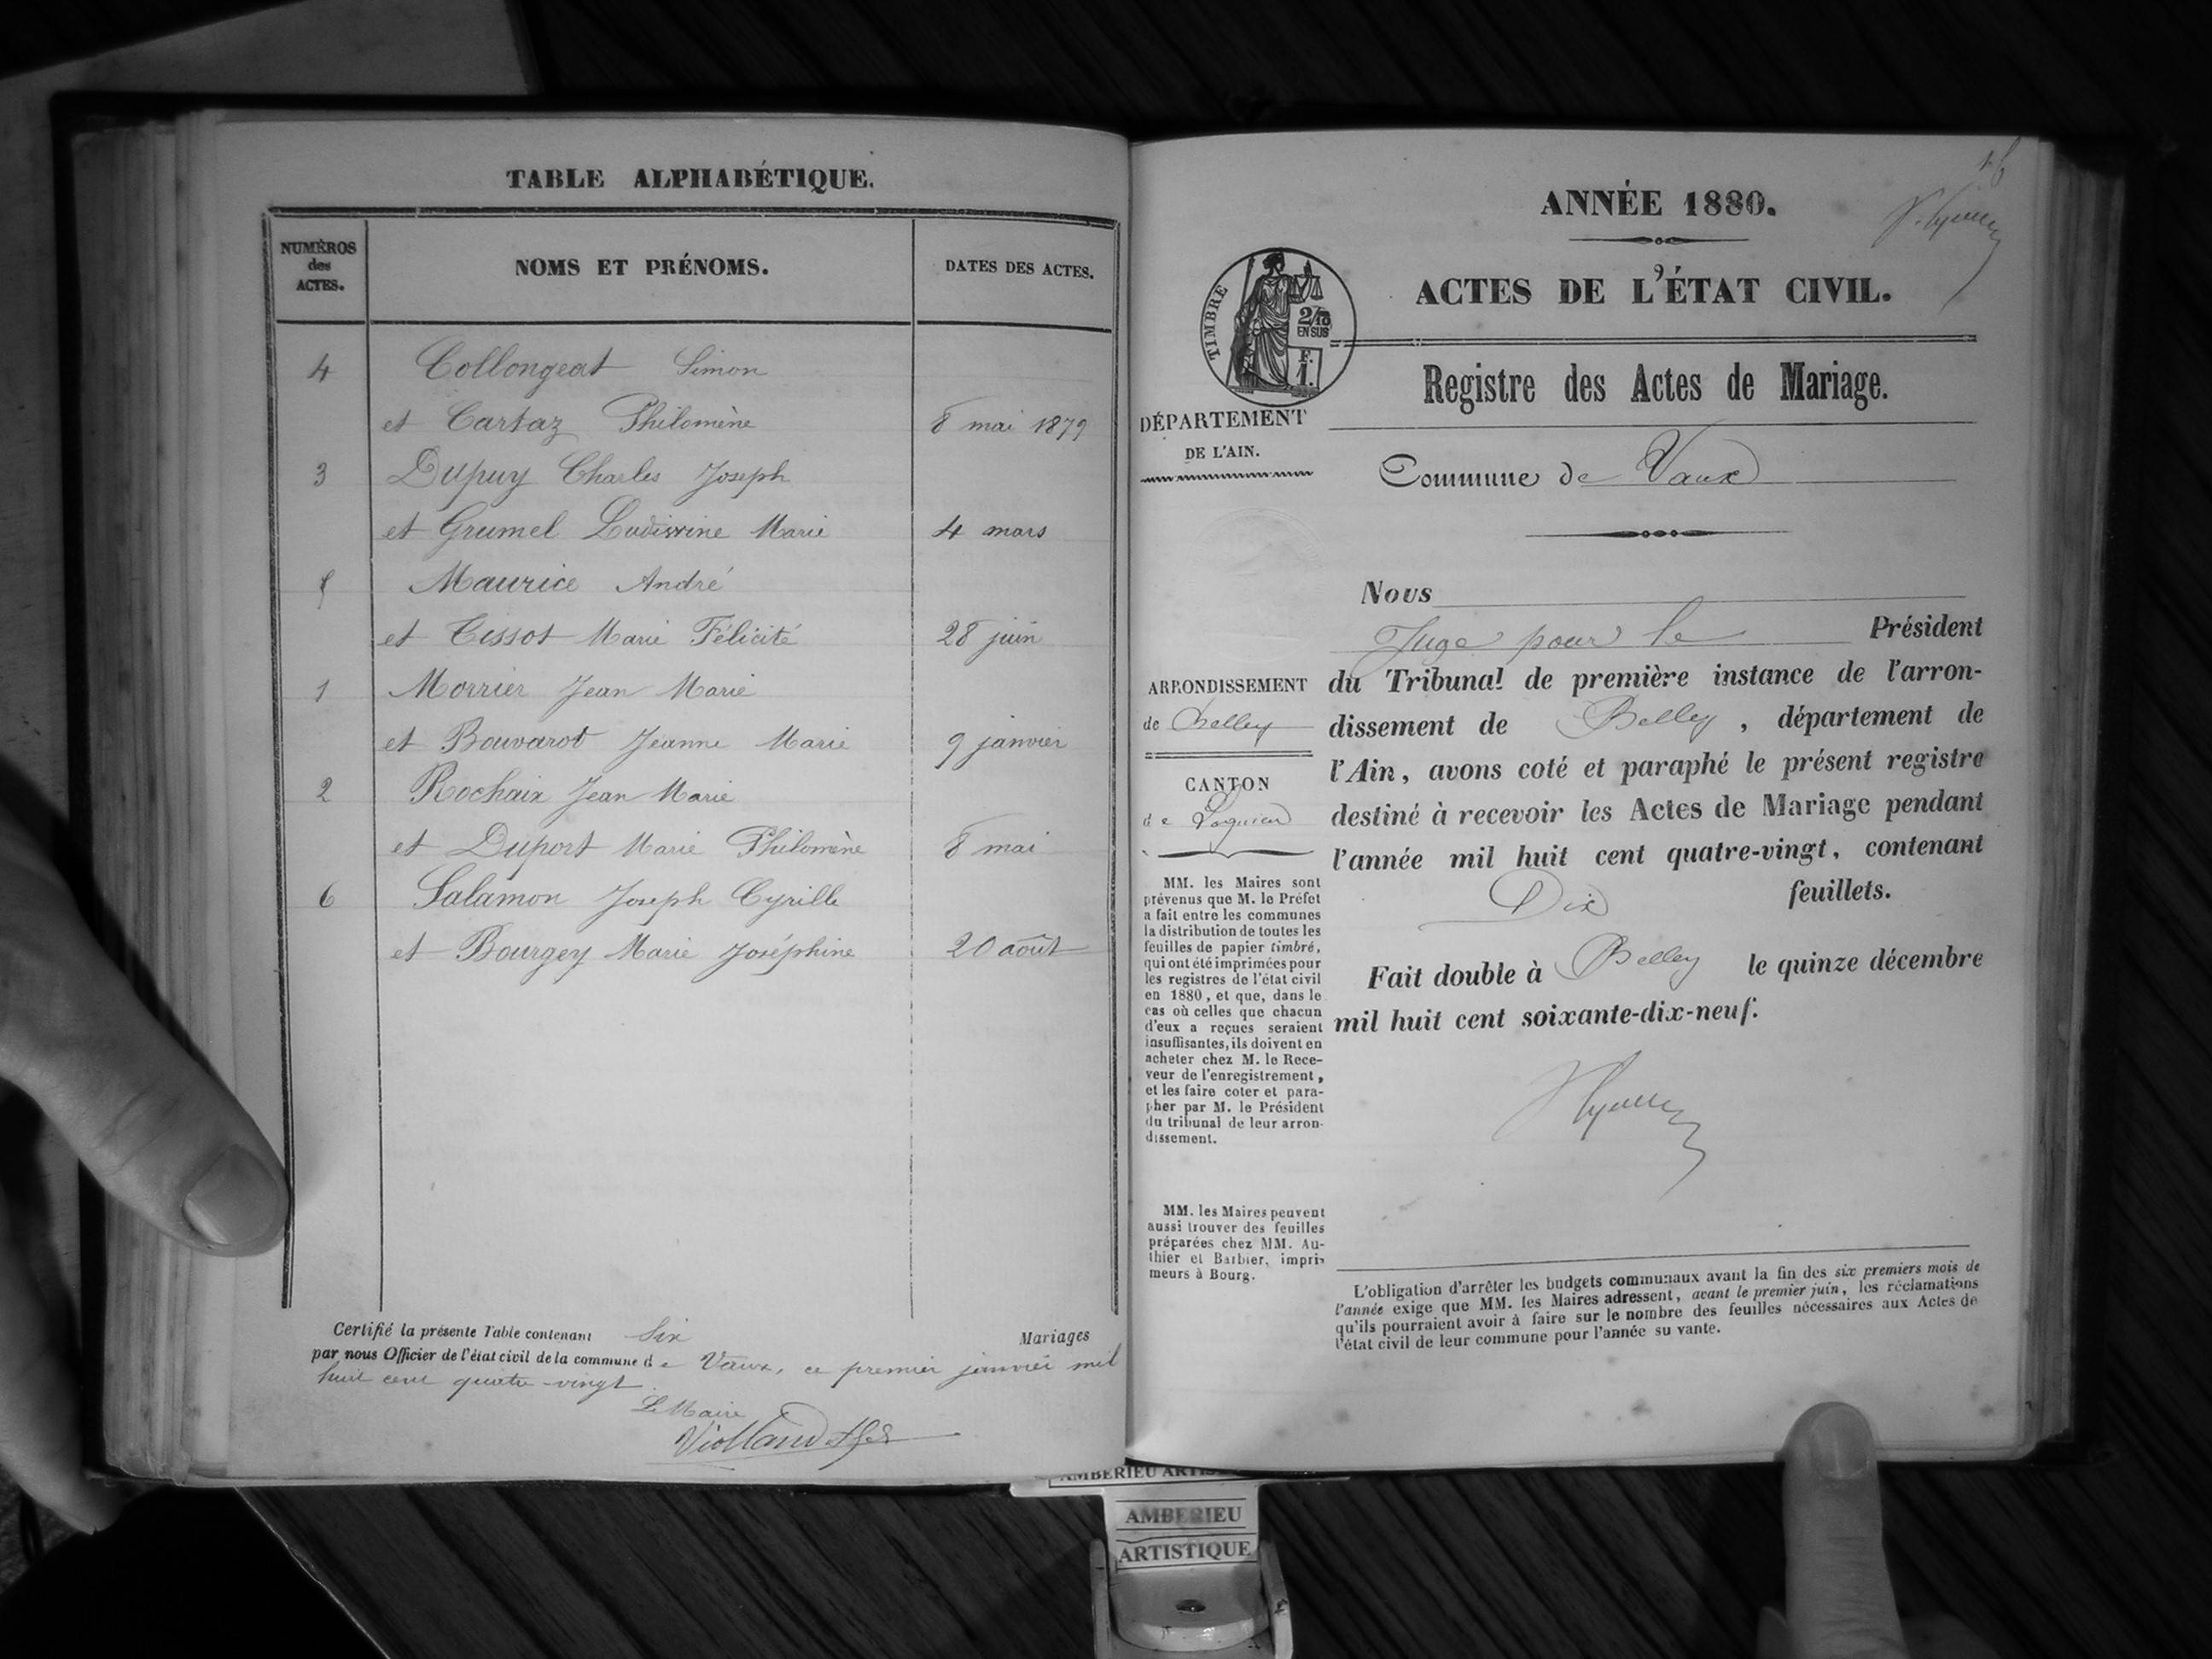 TABLE ALPHABÉTIQUE.
NUMÉROS
des
ACTES.
NOMS ET PRÉNOMS.
DATES DES ACTES.
4 Collongeat Simon
et Cartaz Philomène 8 mai 1879
3 Dupuy Charles Joseph
et Grumel Ludiwine Marie 4 mars
5 Maurice André
et Tissot Marie Félicité 28 juin
1 Morrier Jean Marie
et Bouvarot Jeanne Marie 9 janvier
2 Rochaix Jean Marie
et Duport Marie Philomène 8 mai
6 Salamon Joseph Cyrille
et Bourgey Marie Joséphine 20 août
Certifié la présente Table contenant Six Mariages
par nous Officier de l'état civil de la commune de Vaux, ce premier janvier mil
huit cent quatre-vingt
Le Maire
16
ANNÉE 1880.
ACTES DE L'ÉTAT CIVIL.
TIMBRE
2/10
EN SUS
F.
1.
Registre des Actes de Mariage.
DÉPARTEMENT
DE L'AIN.
Commune de Vaux
Nous
Juge pour le Président
du Tribunal de première instance de l'arron-
dissement de Belley, département de
l'Ain, avons coté et paraphé le présent registre
destiné à recevoir les Actes de Mariage pendant
l'année mil huit cent quatre-vingt, contenant
Dix feuillets.
Fait double à Belley le quinze décembre
mil huit cent soixante-dix-neuf.
ARRONDISSEMENT
de Belley
CANTON
de Lagnieu
MM. les Maires sont
prévenus que M. le Préfet
a fait entre les communes
la distribution de toutes les
feuilles de papier timbré,
qui ont été imprimées pour
les registres de l'état civil
en 1880, et que, dans le
cas où celles que chacun
d'eux a reçues seraient
insuffisantes, ils doivent en
acheter chez M. le Rece-
veur de l'enregistrement,
et les faire coter et para-
pher par M. le Président
du tribunal de leur arron-
dissement.
MM. les Maires peuvent
aussi trouver des feuilles
préparées chez MM. Au-
thier et Barbier, impri-
meurs à Bourg.
L'obligation d'arrêter les budgets communaux avant la fin des six premiers mois de
l'année exige que MM. les Maires adressent, avant le premier juin, les réclamations
qu'ils pourraient avoir à faire sur le nombre des feuilles nécessaires aux Actes de
l'état civil de leur commune pour l'année su vante.
AMBERIEU
ARTISTIQUE